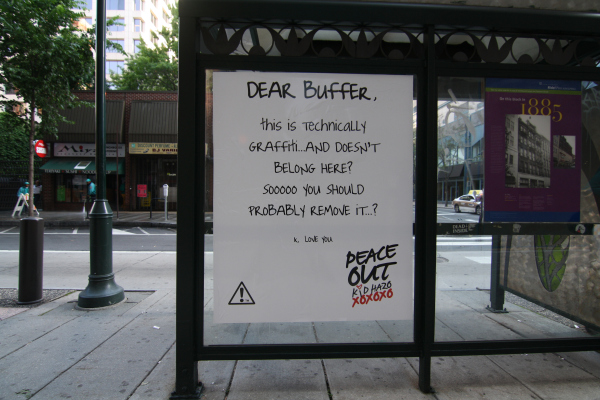 DEAR BUFFER,
this is technically
GRAFFiti...AND DOESN'T
BELONG HERE?
SOOOOO YOU SHOULD
PROBABLY REMOVE IT...?
K. LOVE YOU
PEACE
OUT
KiD HAZO
XOXOXO
1885